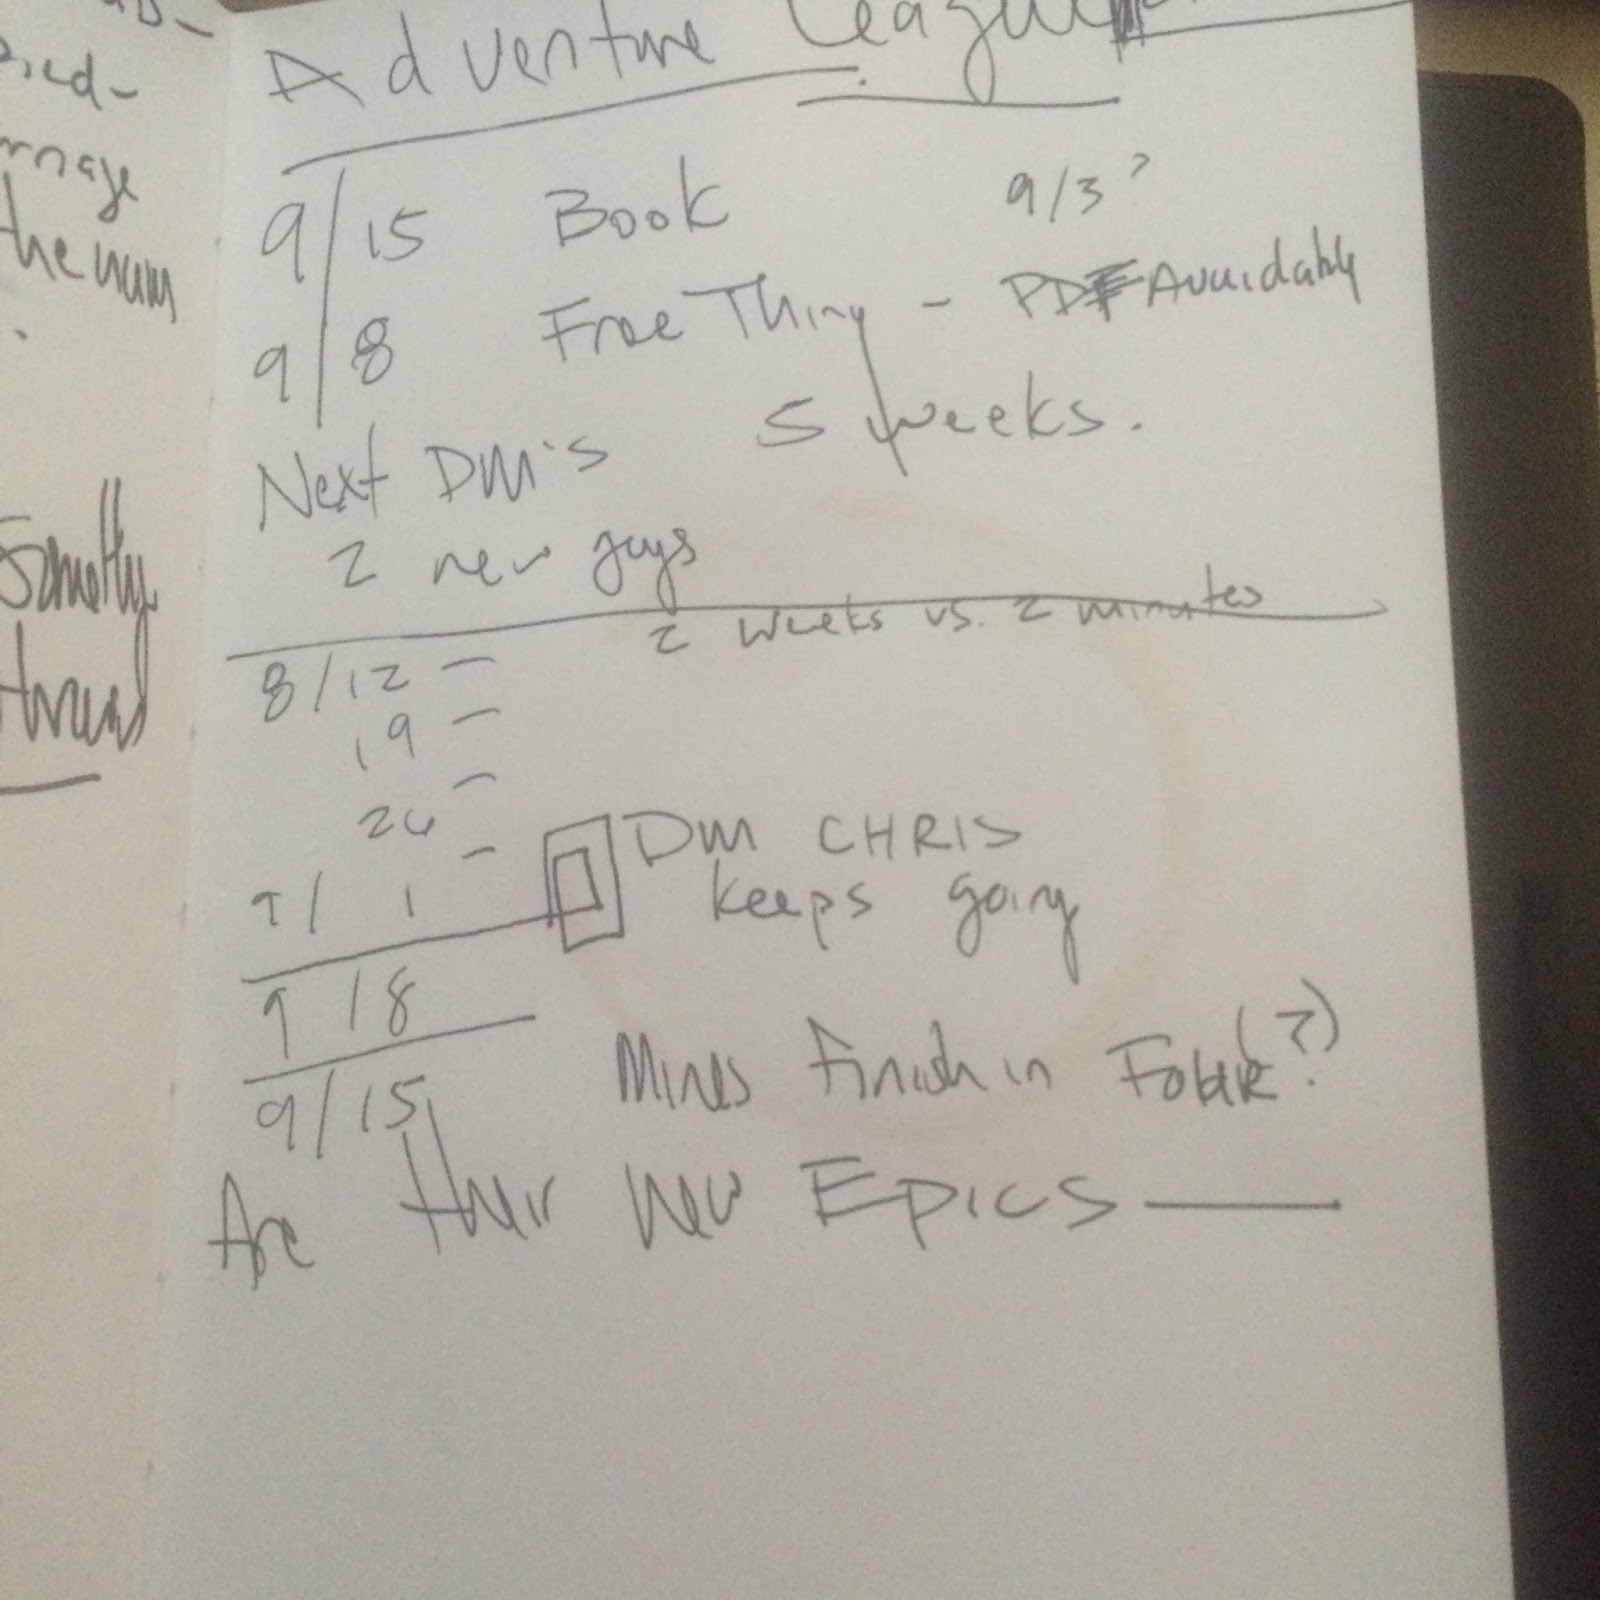 Adventure League
9/15 Book 9/3?
9/8 Free Thing - PDF Avaidably
Next DM's 5 weeks.
2 new guys
2 weeks vs. 2 minutes
8/12 -
19 -
26 -
9/1 - DM CHRIS
keeps going
9/8
9/15 Mines Finish in
Are their new Epics —
the num